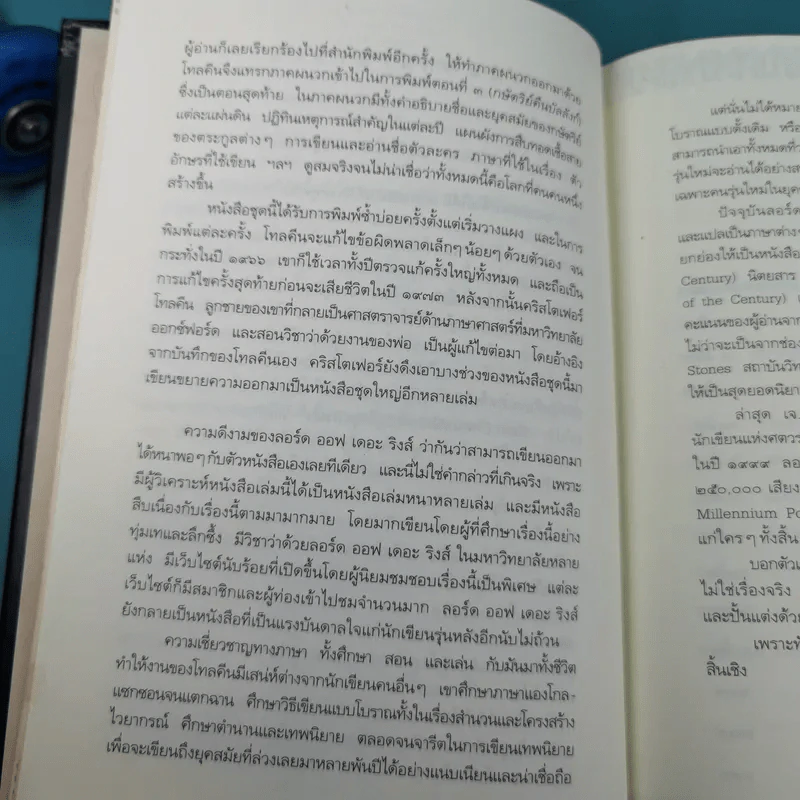 ผู้อ่านก็เลยเรียกร้องไปที่สำนักพิมพ์อีกครั้ง ให้ทำภาคผนวกออกมาด้วย
โทลคีนจึงแทรกภาคผนวกเข้าไปในการพิมพ์ตอนที่ ๓ (กษัตริย์คืนบัลลังก์)
ซึ่งเป็นตอนสุดท้าย ในภาคผนวกมีทั้งคำอธิบายชื่อและยุคสมัยของกษัตริย์
แต่ละแผ่นดิน ปฏิทินเหตุการณ์สำคัญในแต่ละปี แผนผังการสืบทอดเชื้อสาย
ของตระกูลต่างๆ การเขียนและอ่านชื่อตัวละคร ภาษาที่ใช้ในเรื่อง ตัว
อักษรที่ใช้เขียน ฯลฯ ดูสมจริงจนไม่น่าเชื่อว่าทั้งหมดนี้คือโลกที่คนคนหนึ่ง
สร้างขึ้น
หนังสือชุดนี้ได้รับการพิมพ์ซ้ำบ่อยครั้งตั้งแต่เริ่มวางแผง และในการ
พิมพ์แต่ละครั้ง โทลคีนจะแก้ไขข้อผิดพลาดเล็กๆ น้อยๆ ด้วยตัวเอง จน
กระทั่งในปี ๑๙๖๖ เขาก็ใช้เวลาทั้งปีตรวจแก้ครั้งใหญ่ทั้งหมด และถือเป็น
การแก้ไขครั้งสุดท้ายก่อนจะเสียชีวิตในปี ๑๙๗๓ หลังจากนั้นคริสโตเฟอร์
โทลคีน ลูกชายของเขาที่กลายเป็นศาสตราจารย์ด้านภาษาศาสตร์ที่มหาวิทยาลัย
ออกซ์ฟอร์ด และสอนวิชาว่าด้วยงานของพ่อ เป็นผู้แก้ไขต่อมา โดยอ้างอิง
จากบันทึกของโทลคีนเอง คริสโตเฟอร์ยังดึงเอาบางช่วงของหนังสือชุดนี้มา
เขียนขยายความออกมาเป็นหนังสือชุดใหญ่อีกหลายเล่ม
ความดีงามของลอร์ด ออฟ เดอะ ริงส์ ว่ากันว่าสามารถเขียนออกมา
ได้หนาพอๆ กับตัวหนังสือเองเลยทีเดียว และนี่ไม่ใช่คำกล่าวที่เกินจริง เพราะ
มีผู้วิเคราะห์หนังสือเล่มนี้ได้เป็นหนังสือเล่มหนาหลายเล่ม และมีหนังสือ
สืบเนื่องกับเรื่องนี้ตามมามากมาย โดยมากเขียนโดยผู้ที่ศึกษาเรื่องนี้อย่าง
ทุ่มเทและลึกซึ้ง มีวิชาว่าด้วยลอร์ด ออฟ เดอะ ริงส์ ในมหาวิทยาลัยหลาย
แห่ง มีเว็บไซต์นับร้อยที่เปิดขึ้นโดยผู้นิยมชมชอบเรื่องนี้เป็นพิเศษ แต่ละ
เว็บไซต์ก็มีสมาชิกและผู้ท่องเข้าไปชมจำนวนมาก ลอร์ด ออฟ เดอะ ริงส์
ยังกลายเป็นหนังสือที่เป็นแรงบันดาลใจแก่นักเขียนรุ่นหลังอีกนับไม่ถ้วน
ความเชี่ยวชาญทางภาษา ทั้งศึกษา สอน และเล่น กับมันมาทั้งชีวิต
ทำให้งานของโทลคีนมีเสน่ห์ต่างจากนักเขียนคนอื่นๆ เขาศึกษาภาษาแองโกล-
แซกซอนจนแตกฉาน ศึกษาวิธีเขียนแบบโบราณทั้งในเรื่องสำนวนและโครงสร้าง
ไวยากรณ์ ศึกษาตำนานและเทพนิยาย ตลอดจนจารีตในการเขียนเทพนิยาย
เพื่อจะเขียนถึงยุคสมัยที่ล่วงเลยมาหลายพันปีได้อย่างแนบเนียนและน่าเชื่อถือ
แต่นั่นไม่ได้หมาย
โบราณแบบดั้งเดิม หรือ
สามารถนำเอาทั้งหมดที่
รุ่นใหม่จะอ่านได้อย่าง
เฉพาะคนรุ่นใหม่ในยุค
ปัจจุบันลอร์ด
และแปลเป็นภาษาต่างๆ
ยกย่องให้เป็นหนังสือ
Century) นิตยสาร
of the Century)
คะแนนของผู้อ่านจาก
ไม่ว่าจะเป็นจากช่อง
Stones สถาบันวิท
ให้เป็นสุดยอดนิยา
ล่าสุด เจ.
นักเขียนแห่งศตวร
ในปี ๑๙๙๙ ลอ
๒๕๐,๐๐๐ เสียง
Millennium Po
แก่ใครๆ ทั้งสิ้น
บอกตัวเ
ไม่ใช่เรื่องจริง
และปั้นแต่งด้ว
เพราะทั
สิ้นเชิง